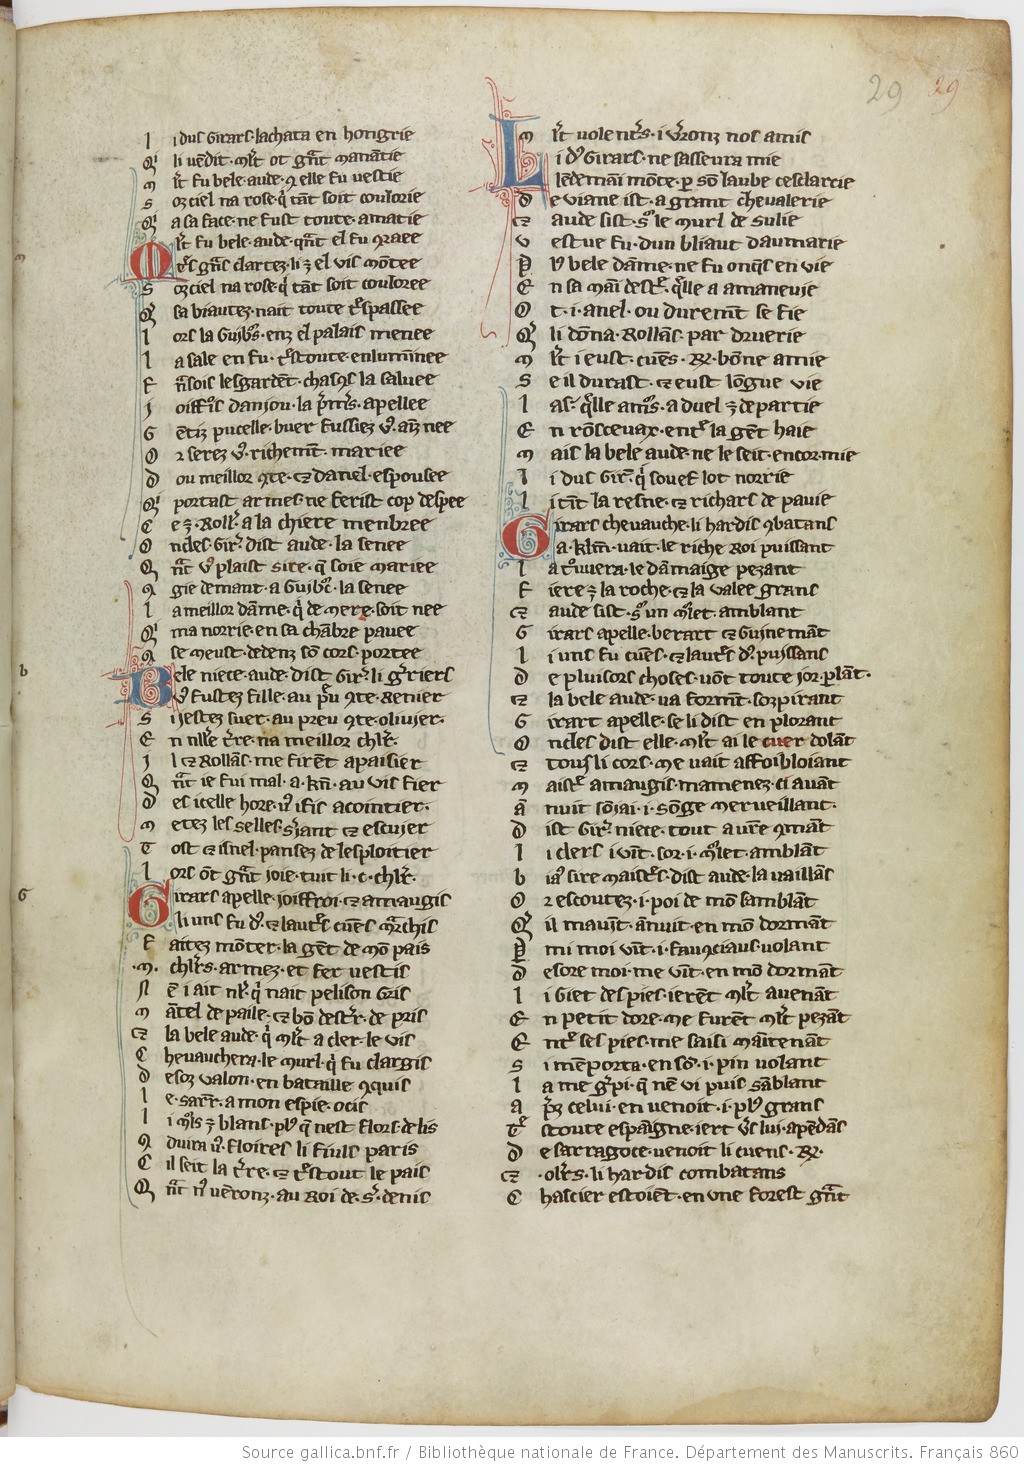 29 29
li dus Girars lachata en hongrie
Qi li vēdit. mlt ot gnt manātie
mlt fu bele aude. q̄ elle fu vestie
soz ciel na rose. q̇ tāt soit coulorie
Qi a sa face. ne fust toute amatie
mlt fu bele aude. qnt el fu paree
m
Trs gns clartez. li ꝫ el vis mōtee
soz ciel na rose. q̇ tāt soit couloree
Qi sa biautez. nait toute trspassee
lors la Guibrs. enz el palais menee
la sale en fu. trstoute enluminee
Frāsois lesgardēt. chascus la saluee
joiffrois danjou. la prmrs. apellee
Gētiz pucelle. buer fussiez vos ainz nee
Or serez vos. richemt. mariee
dou meillor qte. ꝫ daniel espousee
Qi portast armes. ne ferist cop despee
Ce ꝫ. Roll'. a la chiere menbree
Oncles. Gir'. dist aude. la senee
Qnt vos plaist sire. q̄ soie mariee
9gie demant. a Guibrc. la senee
la meillor dāme. q̇ de mere. soit nee
Qi ma norrie. en sa chābre pavee
9se meust. dedenz sō cors. portee
b
Bele niece. aude. dist Gir'. li guerriers
vos fustez fille. au preu qte. Renier
si iestez suer. au preu qte. olivier.
En nulle trre. na meillor chlr.
jl ꝫ Rollās. me firēt apaisier
Qnt ie fui mal. a. kl'n. au vis fier
des icelle hore. vos ifis acointier.
metez les selles. srjant ꝫ escuier
Tost ꝫ isnel. pansez de lesploitier
lors ōt gnt joie. tuit li. c. chlr.
G
Girars apelle. joiffroi. ꝫ amaugis
li uns fu dus. ꝫ lautrs cuēs mrchis
Faitez mōter. la gēt de mō pais
.m. chlrs. armez. et fer vestis
Nē i ait nul. q̇ nait pelison gris
māntel de paile. ꝫ bō destrr. de pris
ꝫ la bele aude. q̇ mlt a cler. le vis
Chevauchera. le murl. q̇ fu clargis
desoz valon. en bataille 9quis
le. sarr. a mon espie. ocis
li mls ꝫ blans. plus q̄ nest flors de lis
9duira vos. floires li fiuls paris
Cil seit la trre. ꝫ trstout le pais
Qnt nos vēronz. au Roi de. st. denis
mlt volentrs. i vrronz nos amis
Li dus Girars. ne sasseura mie
lēdemāi mōte. pr sō laube esclarcie
de viane ist. a grant chevalerie
ꝫ aude sist. sor le murl de sulie
vestue fu. dun bliaut daumarie
Plus bele dāme. ne fu onqs en vie
En sa māi destre. qlle a amanevie
Ot. i. anel. ou duremt se fie
Qi li dōna. Rollās. par druerie
mlt i eust. cuēs. R. bōne amie
se il durast. ꝫ eust lōgue vie
las. qlle amors. a duel ꝫ departie
En rōscevax. entre la gēt haie
mais la bele aude. ne le seit. encor mie
li dus Gir'. q̇ souef lot norrie
li tint la resne. ꝫ richars de pavie
Girars chevauche. li hardis 9batans
a. kl'm. vait. le riche Roi puissant
la trvvera. le dāmaige pezant
Fiere ꝫ la roche. ꝫ la valee grans
ꝫ aude sist. sor un mlet. amblant
Girars apelle. berart ꝫ Guinemāt
li uns fu cuēs. ꝫ lautrs dus puissans
de pluisors choses. vōt toute jor. plāt.
ꝫ la bele aude. va formt. sozpirant
Girart apelle. se li dist en plorant
Oncles dist elle. mlt ai le cuer dolāt
ꝫ touz li cors. me vait affoibloiant
maistre amaugis. mamenez. ci avāt
ānuit sōjai. i. sōge merveillant.
dist Gir'. niece. tout a vvre qmāt
li clers i vīt. sor. i. mlet. amblāt
biaus sire maistres. dist aude. la vaillās
Or escoutez. i. poi de mō samblāt
Qil mavīt. ānuit. en mō dormāt
Pr mi moi vīt. i. fauqciaus. volant
desore moi. me vīt. en mō dormāt
li giet des pies. ierēt mlt avenāt
En petit dore. me furēt mlt pezāt
Entre ses pies. me saisi maītenāt
si mēporta. en sō. i. pin volant
la me guerpi. q̄ nē vi puis sāblant
aprez celui. en venoit. i. plus grans
Trestoute espaigne. iert vrs lui. apēdās
de sarragoce. venoit li cuens. R.
ꝫ. olrs. li hardis combatans
Chascier estoiēt. en une forest gnt
Source gallica.bnf.fr / Bibliothèque nationale de France. Département des Manuscrits. Français 860